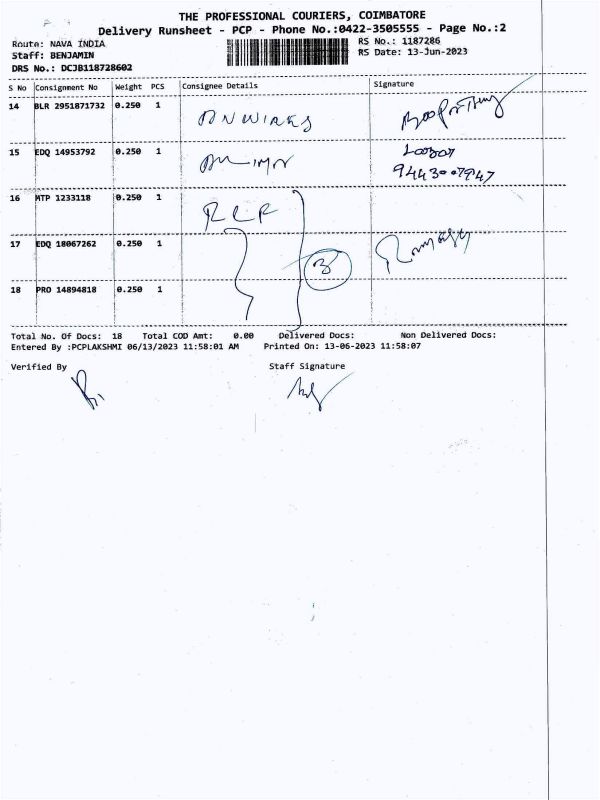 THE PROFESSIONAL COURIERS, COIMBATORE
Delivery Runsheet - PCP - Phone No.:0422-3505555 - Page No.:2
Route: NAVA INDIA
Staff: BENJAMIN
DRS No.: DCJB118728602
RS No.: 1187286
RS Date: 13-Jun-2023
S No Consignment No Weight PCS Consignee Details Signature
14 BLR 2951871732 0.250 1
15 EDQ 14953792 0.250 1
16 MTP 1233118 0.250 1 RCP
17 EDQ 18067262 0.250 1 3
18 PRO 14894818 0.250 1
Total No. Of Docs: 18 Total COD Amt: 0.00 Delivered Docs: Non Delivered Docs:
Entered By :PCPLAKSHMI 06/13/2023 11:58:01 AM Printed On: 13-06-2023 11:58:07
Verified By Staff Signature